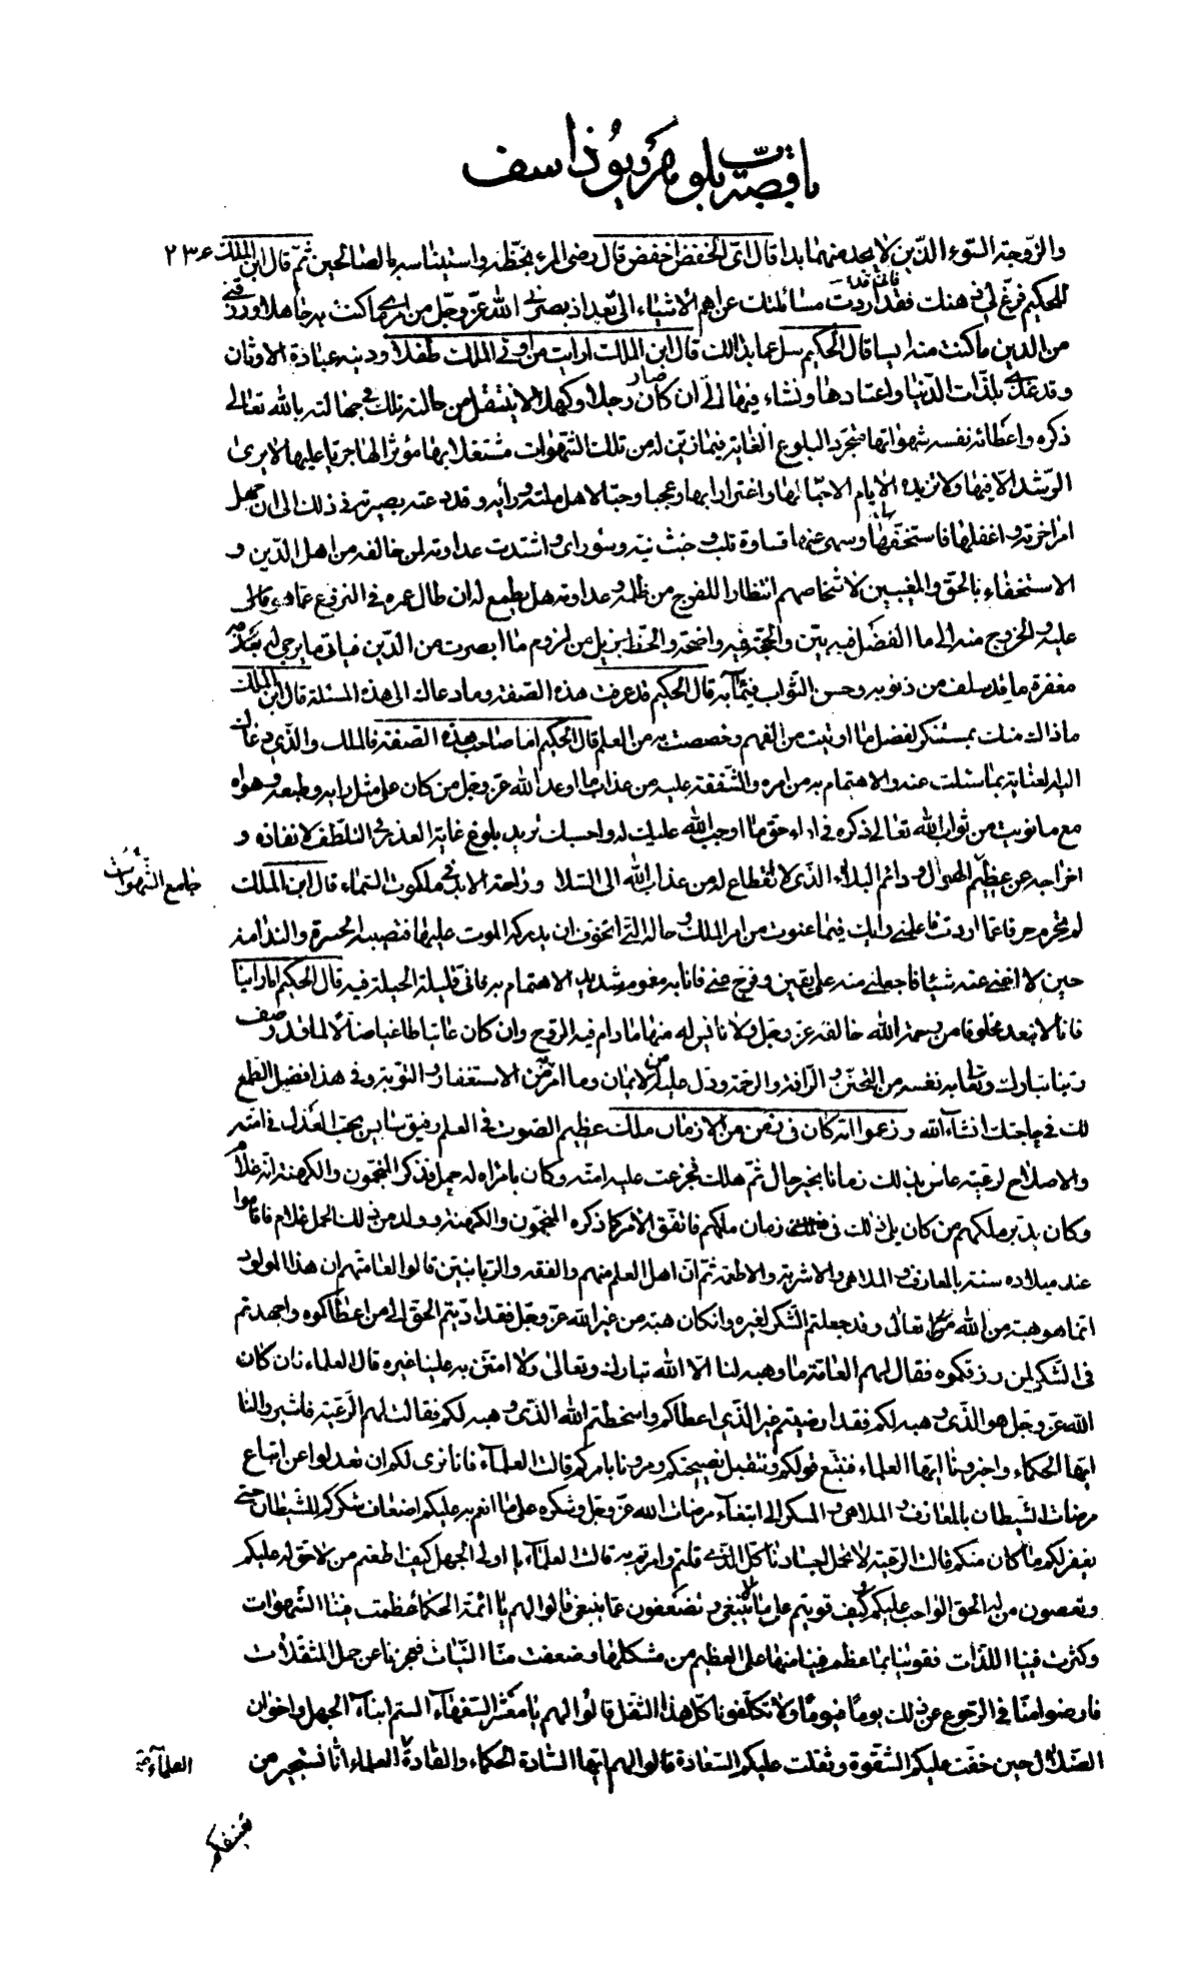 باب قصة بلوهر ويوذاسف
والزوجة السوء الذين لا يجد منهما بدا قال اى الخفض اخفض قال رضى المرء بحظه واستيناسه بالصالحين ثم قال ابن الملك ٢٣٤
للحكيم فرغ لى ذهنك فقد اردت مسائلتك عن اهم الاشياء الى بعد اذ بصرنى الله عز وجل من امرى ما كنت به جاهلا ورزقنى
من الدين ما كنت منه ايسا قال الحكيم سل عما بدا لك قال ابن الملك ارايت من اوتى الملك طفلا ودينه عبادة الاوثان
وقد غذى بلذات الدنيا واعتادها ونشاء فيها الى ان كان رجلا وكهلا لا ينتقل من حالته تلك فى جهالته بالله تعالى
ذكره واعطائه نفسه شهواتها متجردا لبلوغ الغاية فيما زين له من تلك الشهوات مشتغلا بها مؤثرا لها جريا عليها لا يرى
الرشد الا فيها ولا تزيده الايام الا حبا لها واغترارا بها وعجبا وحبا لاهل ملته ورأيه وقد دعته بصيرته فى ذلك الى ان جهل
امر اخرته واغفلها فاستخف بها وسهى عنها قساوة قلب وخبث نية وسوء راى واشتدت عداوته لمن خالفه من اهل الدين و
الاستخفاء بالحق والمغيبين لاشخاصهم انتظارا للفرج من ظلمه وعداوته هل يطمع له ان طال عمره فى النزوع عما هو
عليه والخروج منه الى ما الفضل فيه بين والحجة فيه واضحة والحظ جزيل من لزوم ما ابصرت من الدين فياتى ما يرجى له به
مغفرة ما قد سلف من ذنوبه وحسن الثواب فى مآبه قال الحكيم قد عرفت هذه الصفة وما دعاك الى هذه المسئلة قال ابن الملك
ما ذاك منك بمستنكر لفضل ما اوتيت من الفهم وخصصت به من العلم قال الحكيم اما صاحب هذه الصفة فالملك والذى دعاك
اليه لعناية بما سئلت عنه والاهتمام به من امره والشفقة عليه من عذاب ما اوعد الله عز وجل من كان على مثل رايه وطبعه وهواه
مع ما نويت من ثواب الله تعالى ذكره فى اداء حق ما اوجب الله عليك له واحسبك تريد بلوغ غاية العذر فى التلطف لانقاذه و
اخراجه عن عظيم الهول ودائم البلاء الذى لا انقطاع له من عذاب الله الى السلامة وراحة الابد فى ملكوت السماء قال ابن الملك
جامع الشهوات
لم تجرم حرفا عما اردت فاعلمنى رايك فيما عنوت من امر الملك وحاله التى اتخوف ان يدركه الموت عليها فتصيبه الحسرة والندامة
حين لا اغنى عنه شيئا فاجعلنى منه على يقين وفرج عنى فانا به مغموم شديد الاهتمام به فانى قليلة الحيلة فيه قال الحكيم اما راينا
فانا لا نبعد مخلوقا من رحمة الله خالقه عز وجل ولا نايس له منها ما دام فيه الروح وان كان عاتيا طاغيا ضالا لما قد وصف
ربنا تبارك وتعالى به نفسه من التحنن والرافة والرحمة ودل عليه من الايمان وما امر به من الاستغفار والتوبة وفى هذا فضل الطمع
لك فى حاجتك انشاء الله وزعموا انه كان فى زمن من الازمان ملك عظيم الصوت فى العلم رفيق سايس يحب العدل فى امته
والاصلاح لرعيته عاش بذلك زمانا بخير حال ثم هلك فجزعت عليه امته وكان بامراة له حمل فذكر المنجمون والكهنة انه غلام
وكان يدبر ملكهم من كان يلى ذلك فى زمان ملكهم فاتفق الامر كما ذكره المنجمون والكهنة وولد من ذلك الحمل غلام فاقاموا
عند ميلاده سنة بالمعازف والملاهى والاشربة والاطعمة ثم ان اهل العلم منهم والفقه والربانيين قالوا لعامتهم ان هذا المولود
انما هو هبة من الله تعالى وقد جعلتم الشكر لغيره وان كان هبة من غير الله عز وجل فقد اديتم الحق الى من اعطاكموه واجتهدتم
فى الشكر لمن رزقكموه فقال لهم العامة ما وهبه لنا الا الله تبارك وتعالى ولا امتن به علينا غيره قال العلماء فان كان
الله عز وجل هو الذى وهبه لكم فقد ارضيتم غير الذى اعطاكم واسخطتم الله الذى وهبه لكم فقالت لهم الرعية فاشيروا لنا
ايها الحكماء واخبرونا ايها العلماء فنتبع قولكم ونتقبل نصيحتكم ومرونا بامركم قالت العلماء فانا نرى لكم ان تعدلوا عن اتباع
مرضات الشيطان بالمعازف والملاهى والسكر الى ابتغاء مرضات الله عز وجل وشكره على ما انعم به عليكم اضعاف شكركم للشيطان حتى
يغفر لكم ما كان منكم قالت الرعية لا تحمل اجسادنا كل الذى قلتم وامرتم به قالت العلماء يا اولى الجهل كيف اطعتم من لا حق له عليكم
وتعصون من له الحق الواجب عليكم وكيف قويتم على ما لا ينبغى وتضعفون عما ينبغى قالوا لهم يا ائمة الحكماء عظمت فينا الشهوات
وكثرت فينا اللذات فقوينا بما عظم فينا منها على العظيم من مشكلها وضعفت منا النيات فعجزنا عن حمل المثقلات
فارضوا منا فى الرجوع عن ذلك يوما فيوما ولا تكلفونا كل هذا الثقل قالوا لهم يا معشر السفهاء الستم ابناء الجهل واخوان
الضلال حين خفت عليكم الشقوة وثقلت عليكم السعادة قالوا لهم ايها السادة الحكماء والقادة العلماء انا نستجير من
العلماء
تعنيفكم